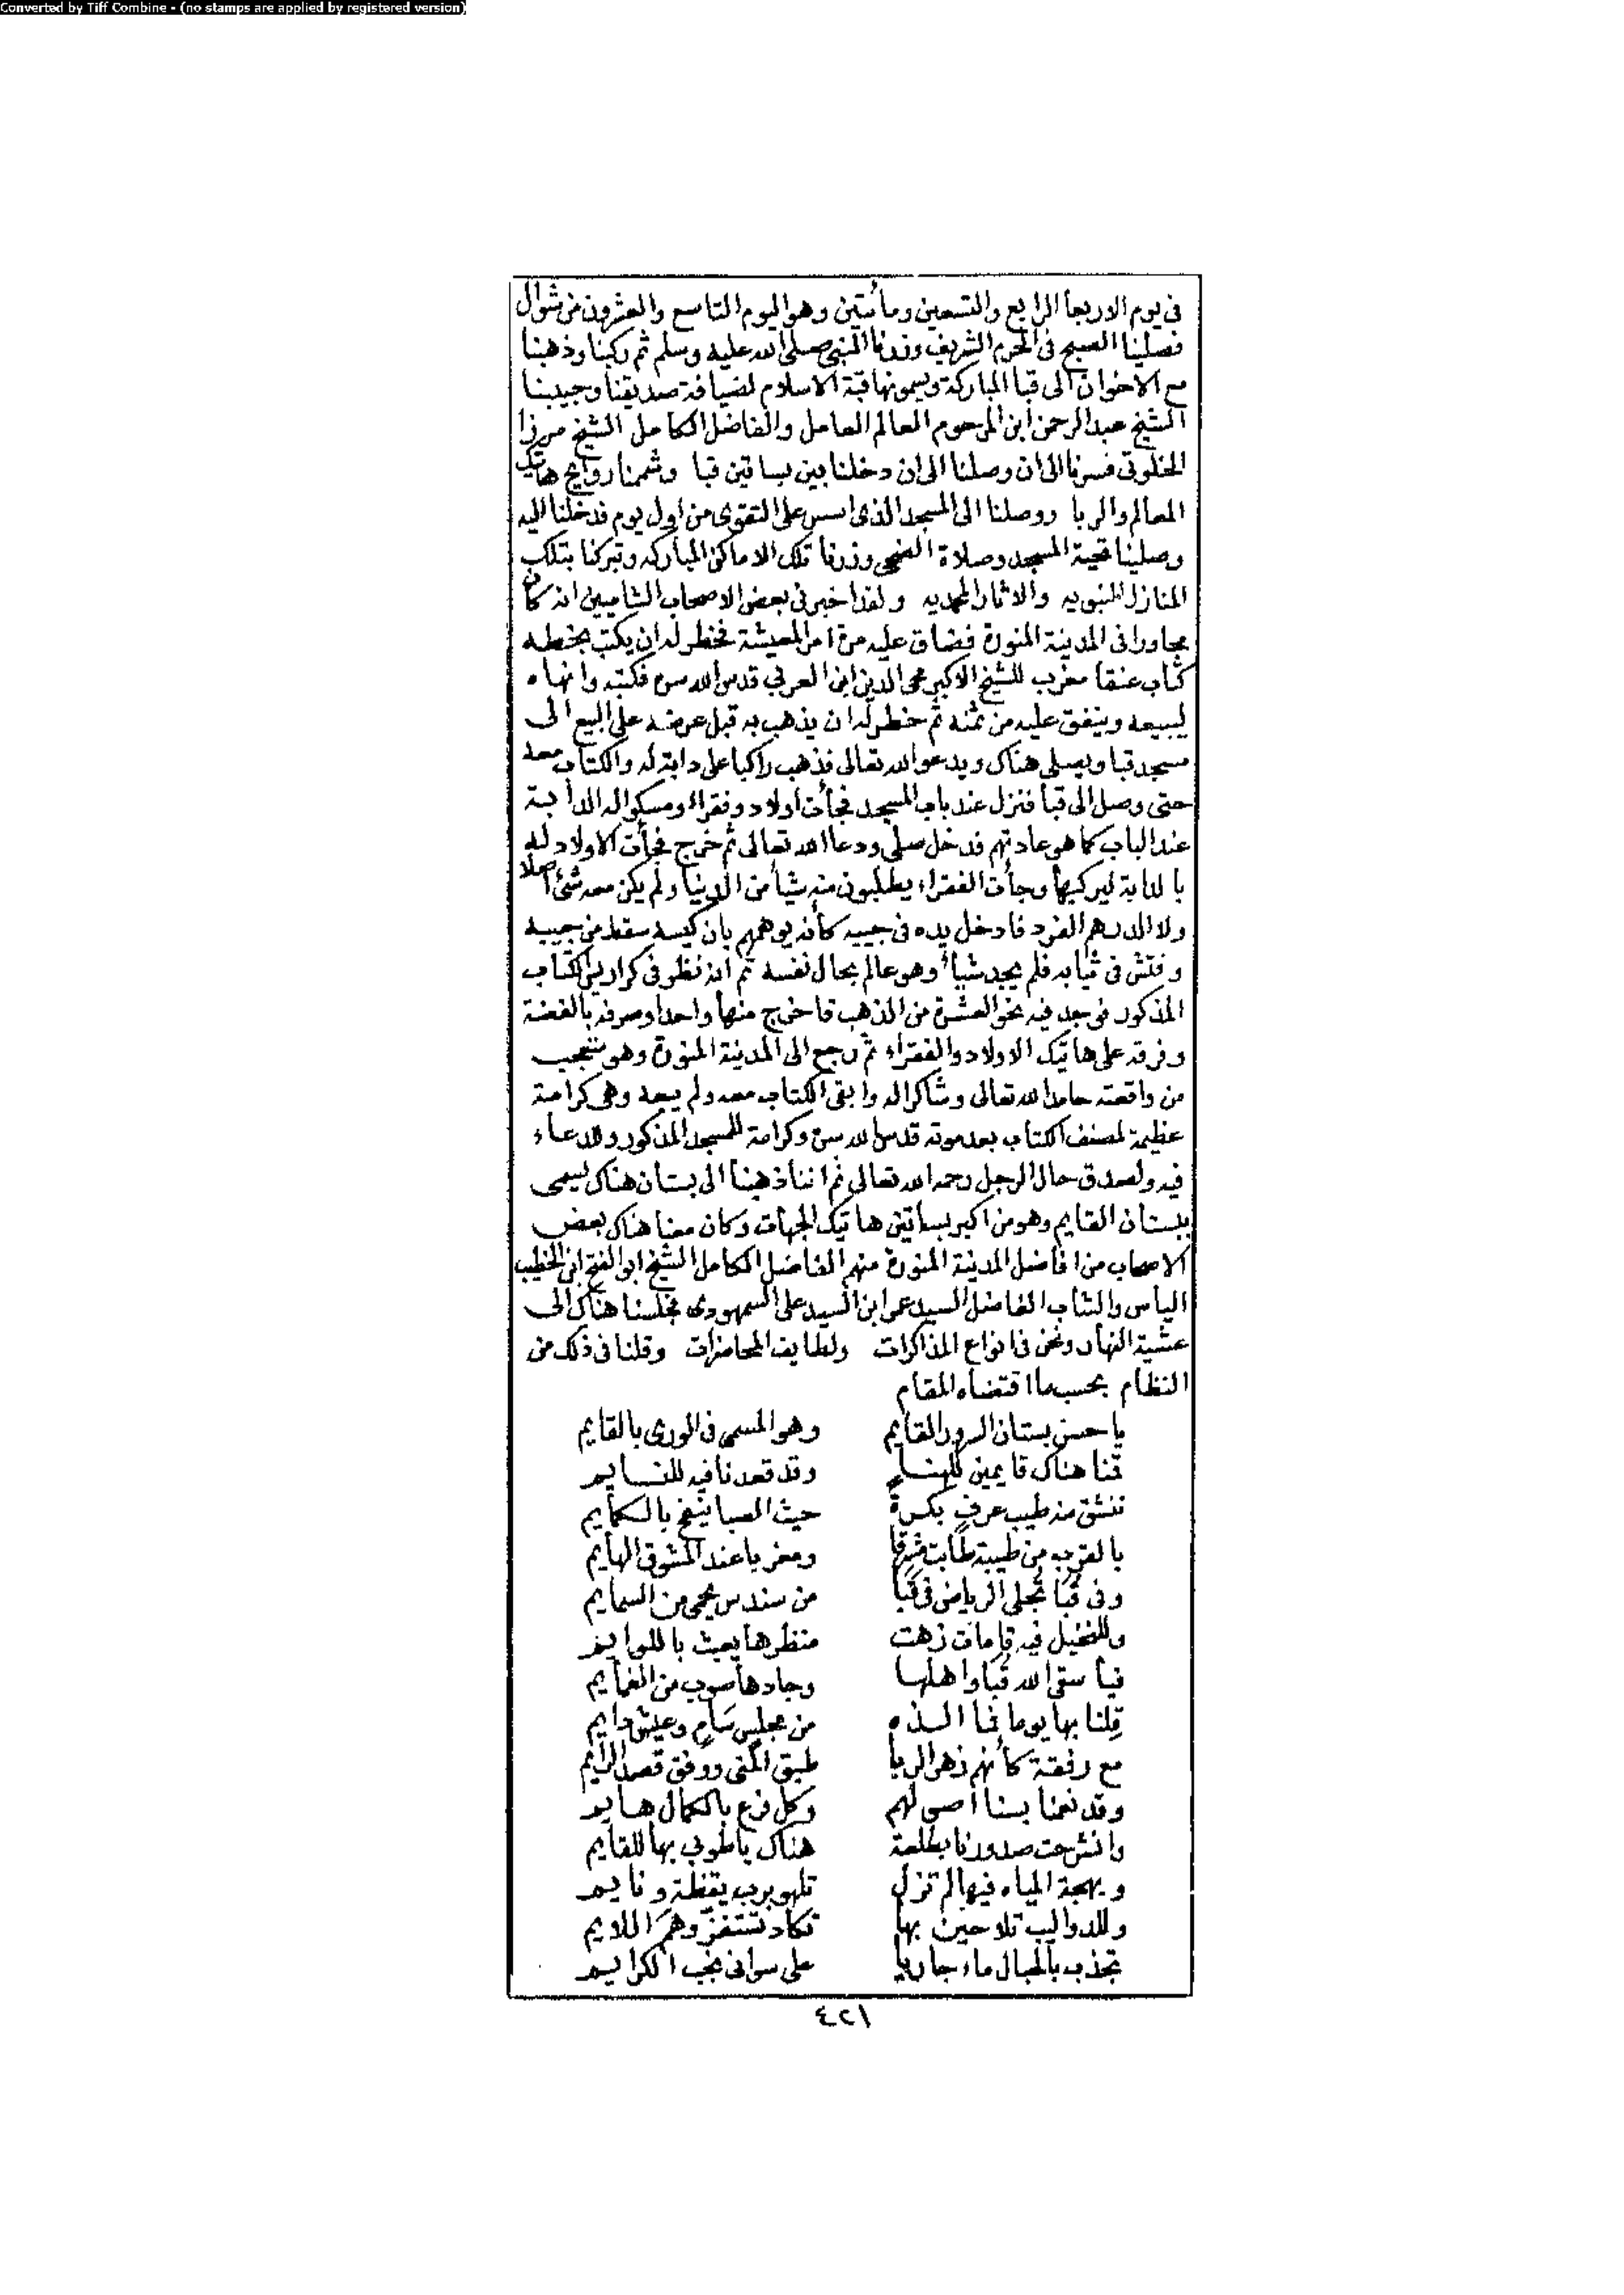 Converted by Tiff Combine - (no stamps are applied by registered version)
في يوم الاربعا الرابع والتسعين ومأتين وهو اليوم التاسع والعشرون من شوال
فصلينا الصبح في الحرم الشريف وزرنا النبي صلى الله عليه وسلم ثم ركبنا وذهبنا
مع الاخوان الى قبا المباركة ويسمونها قبة الاسلام لضيافة صديقنا وحبيبنا
الشيخ عبد الرحمن ابن المرحوم العالم العامل والفاضل الكامل الشيخ مرزا
الخلوتي فسرنا الى ان وصلنا الى ان دخلنا بين بساتين قبا وشممنا روايح هاتيك
المعالم والربا ووصلنا الى المسجد الذي اسس على التقوى من اول يوم فدخلنا اليه
وصلينا تحية المسجد وصلاة الضحى وزرنا تلك الاماكن المباركه وتبركنا بتلك
المنازل النبويه والاثار المحمديه ولقد اخبرني بعض الاصحاب الشاميين انه كان
مجاورا في المدينة المنورة فضاق عليه مرة امر المعيشة فخطر له ان يكتب بخطه
كتاب عنقا مغرب للشيخ الاكبر محي الدين ابن العربي قدس الله سره فكتبه وانهاه
ليبيعه وينفق عليه من ثمنه ثم خطر له ان يذهب به قبل عرضه على البيع الى
مسجد قبا ويصلي هناك ويدعو الله تعالى فذهب راكبا على دابة له والكتاب معه
حتى وصل الى قبا فنزل عند باب المسجد فجأت اولاد وفقراء ومسكوا له الدابة
عند الباب كما هو عادتهم فدخل صلى ودعا الله تعالى ثم خرج فجأت الاولاد له
بالدابة ليركبها وجأت الفقراء يطلبون منه شيأ من الدنيا ولم يكن معه شئ اصلا
ولا الدرهم الفرد فادخل يده في جيبه كأنه يوهمهم بان كيسه سقط من جيبه
وفتش في ثيابه فلم يجد شيأ وهو عالم بحال نفسه ثم انه نظر في كراريس الكتاب
المذكور فوجد فيه نحو العشرة من الذهب فاخرج منها واحدا وصرفه بالفضة
وفرقه على هاتيك الاولاد والفقراء ثم رجع الى المدينة المنورة وهو متعجب
من واقعته حامدا لله تعالى وشاكرا له وابقى الكتاب معه ولم يبعه وهي كرامة
عظيمة لمصنف الكتاب بعد موته قدس الله سره وكرامة للمسجد المذكور والدعاء
فيه ولصدق حال الرجل رحمه الله تعالى ثم اننا ذهبنا الى بستان هناك يسمى
ببستان القايم وهو من اكبر بساتين هاتيك الجهات وكان معنا هناك بعض
الاصحاب من افاضل المدينة المنورة منهم الفاضل الكامل الشيخ ابو الفتح ابن الخطيب
الياس والشاب الفاضل السيد عمر ابن السيد على السمهودى فجلسنا هناك الى
عشية النهار ونحن في انواع المذاكرات ولطايف المحاضرات وقلنا في ذلك من
النظام بحسب ما اقتضاه المقام
يا حسن بستان السرور القايم وهو المسمى في الورى بالقايم
قمنا هناك قايمين للهنا وقد قعدنا فيه للنسايم
ننشق منه طيب عرف بكرة حيث الصبا ينفخ بالكمايم
بالقرب من طيبة طابت مشرقا ومغربا عند المشوق الهايم
وفي قبا تجلى الرياض في قبا من سندس يحمى من السمايم
وللنخيل فيه قامات زهت منظرها يعبث باللوايم
فيا سقى الله قبا واهلها وجادها صوب من الغمايم
قلنا بها يوما فما الذه من مجلس سام وعيش دايم
مع رفقة كأنهم زهر الربا طبق المنى ووفق قصد الرايم
وقد نعمنا بسنا اصى لهم وكل فرع بالكمال هايم
وانشرحت صدورنا بطلعة هناك ياطوبى بها للقايم
وبهجة المياه فيها لم تزل تلهو برب يقظة ونايم
وللدواليب تلاحين بها تكاد تستفز وهم اللايم
تجذب بالحبال ماء جاريا على سوانى نجب الكرايم
٤٢١